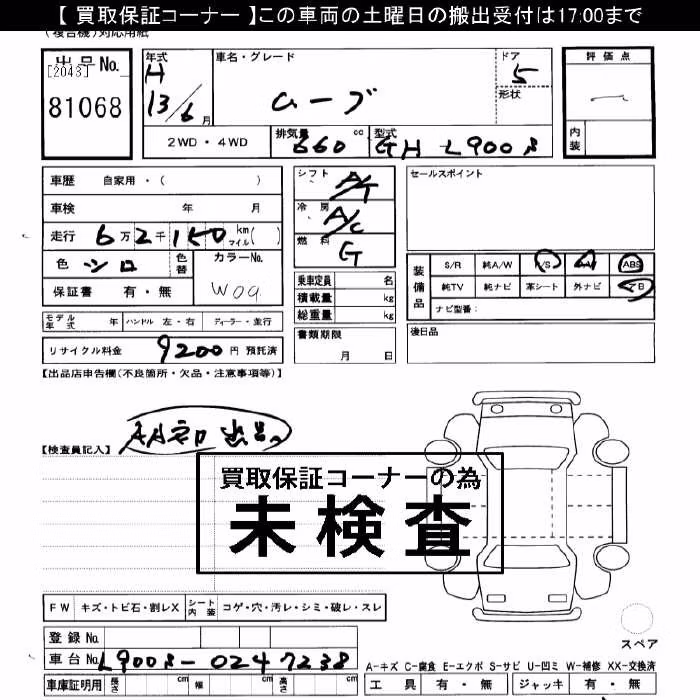 【 買取保証コーナー 】この車両の土曜日の搬出受付は17:00まで
(複合機)対応用紙
出品 No.
[2043]
81068
年式
H
13/6月
車名・グレード
ムーブ
ドア
5
形状
評価点
内装
2WD ・ 4WD
排気量
660
cc
型式
GH-L900S
車歴 自家用・( )
車検 年 月
走行 6万2千150 km マイル( )
色 シロ 色替
カラーNo.
W09
保証書 有・無
モデル年式 年 ハンドル 左・右 ディーラー・並行
リサイクル料金 9200 円 預託済
シフト A/T
冷房 A/C
燃料 G
乗車定員 名
積載量 kg
総重量 kg
書類期限
月 日
セールスポイント
装備品
S/R 純A/W P/S ABS
純TV 純ナビ 革シート 外ナビ
ナビ型番:
後日品
【出品店申告欄(不良箇所・欠品・注意事項等)】
AA初出品
【検査員記入】
買取保証コーナーの為
未検査
FW キズ・トビ石・割レX シート内装 コゲ・穴・汚レ・シミ・破レ・スレ
登録 No.
車台 No. L900S-0247238
車庫証明用 長さ cm 幅 cm 高さ cm
スペア
A-キズ C-腐食 E-エクボ S-サビ U-凹ミ W-補修 XX-交換済
工具 有・無 ジャッキ 有・無